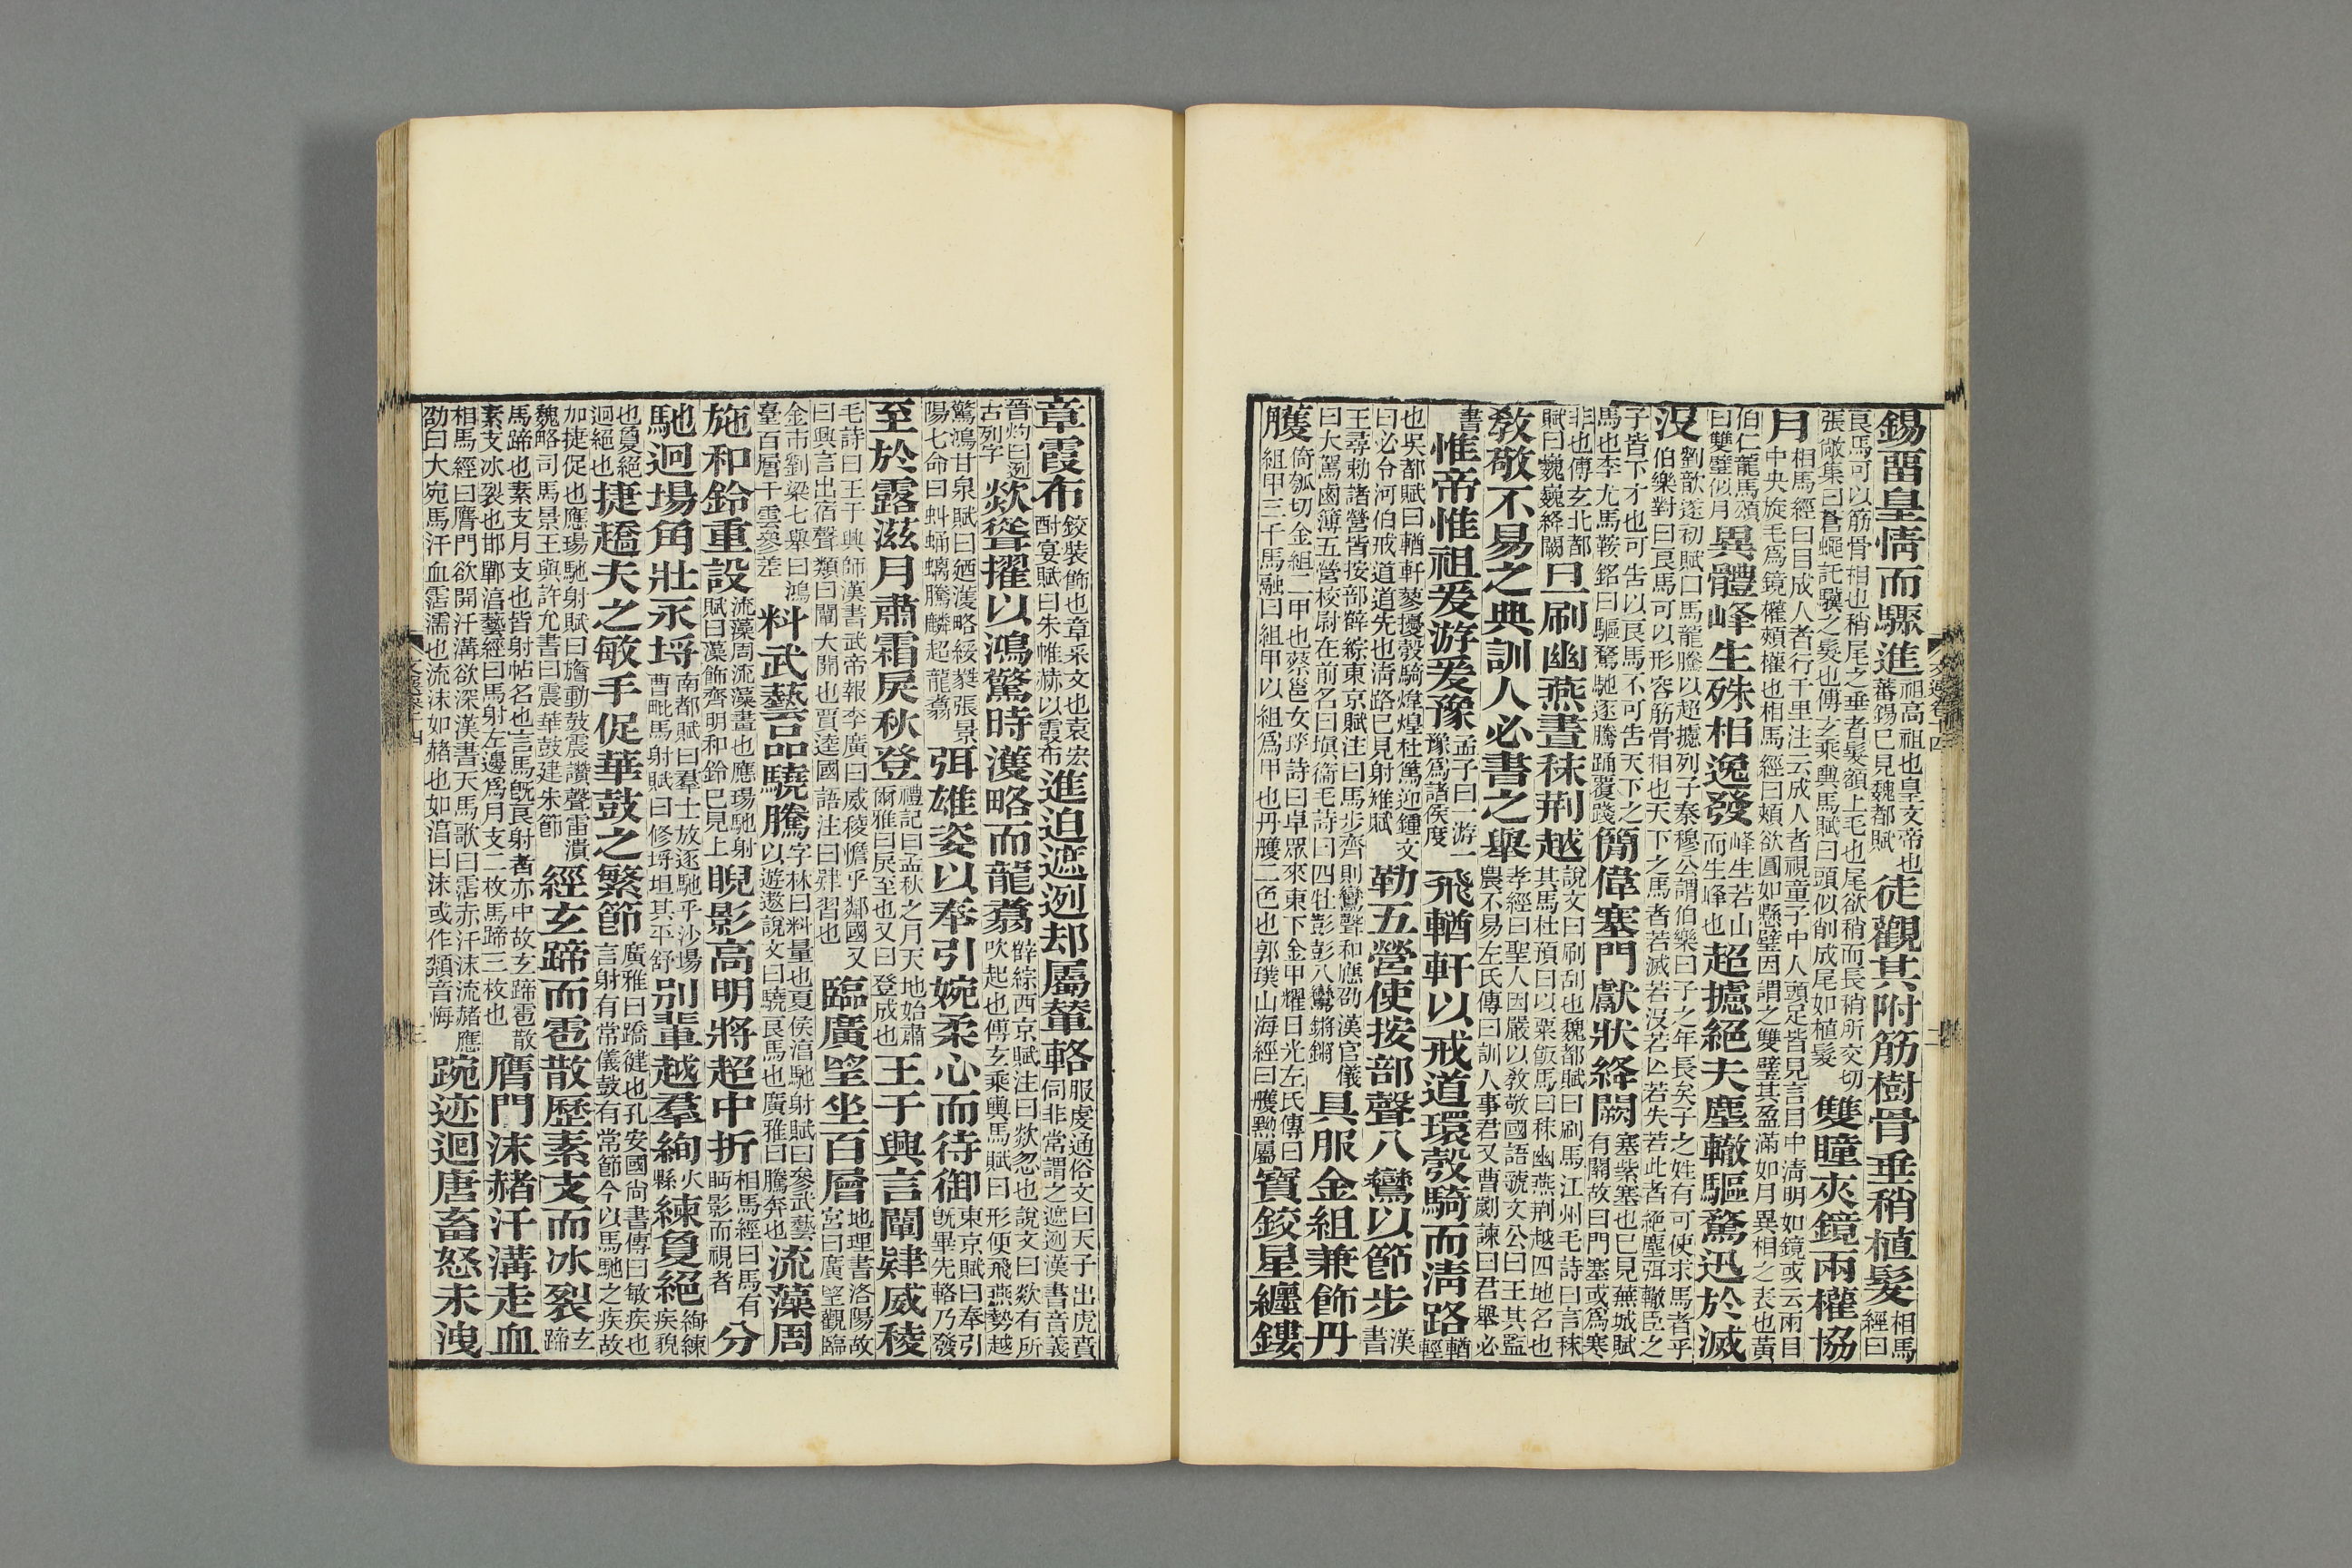 錫畱皇情而驟進祖高祖也皇文帝也蕃錫已見魏都賦徒觀其附筋樹骨垂稍植髮相馬經曰
良馬可以筋骨相也稍尾之垂者髮額上毛也尾欲稍而長稍所交切張敞集曰蒼蠅託驥之髮也傅玄乘輿馬賦曰頭似削成尾如植髮雙瞳夾鏡兩權協
月相馬經曰目成人者行千里注云成人者視童子中人頭足皆見言目中清明如鏡或云兩目中央旋毛爲鏡權頰權也相馬經曰頰欲圓如懸璧因謂之雙璧其盈滿如月異相之表也黃
伯仁龍馬頌曰雙璧似月異體峰生殊相逸發峰生若山而生峰也超攄絕夫塵轍驅騖迅於滅
沒劉歆遂初賦曰馬龍騰以超攄列子秦穆公謂伯樂曰子之年長矣子之姓有可使求馬者乎伯樂對曰良馬可以形容筋骨相也天下之馬者若滅若沒若亾若失若此者絕塵弭轍臣之
子皆下才也可告以良馬不可告天下之馬也李尤馬鞍銘曰驅騖馳逐騰踊覆踐簡偉塞門獻狀絳闕塞紫塞也已見蕪城賦有關故曰門塞或爲寒
非也傅玄北都賦曰巍巍絳闕旦刷幽燕晝秣荊越說文曰刷刮也魏都賦曰刷馬江州毛詩曰言秣其馬杜預曰以粟飯馬曰秣幽燕荊越四地名也
敎敬不易之典訓人必書之舉孝經曰聖人因嚴以敎敬國語虢文公曰王其監農不易左氏傳曰訓人事君又曹劌諫曰君舉必
書惟帝惟祖爰游爰豫孟子曰一游一豫爲諸侯度飛輶軒以戒道環彀騎而清路輶輕
也吳都賦曰輶軒蓼擾彀騎煒煌杜篤迎鍾文曰必令河伯戒道道先也清路已見射雉賦勒五營使按部聲八鸞以節步漢書
王尋勑諸營皆按部薛綜東京賦注曰馬步齊則鸞聲和應劭漢官儀曰大駕鹵簿五營校尉在前名曰塡衞毛詩曰四牡彭彭八鸞鏘鏘具服金組兼飾丹
雘倚瓠切金組二甲也蔡邕女琰詩曰卓眾來東下金甲耀日光左氏傳曰組甲三千馬融曰組甲以組爲甲也丹雘二色也郭璞山海經曰雘黝屬寶鉸星纏鏤
章霞布鉸裝飾也章采文也袁宏酎宴賦曰朱帷赫以霞布進迫遮迾却屬輦輅服虔通俗文曰天子出虎賁伺非常謂之遮迾漢書音義
晉灼曰迾古列字欻聳擢以鴻驚時濩略而龍翥薛綜西京賦注曰欻忽也說文曰欻有所吹起也傅玄乘輿馬賦曰形便飛燕勢越
驚鴻甘泉賦曰廼濩略綏蕤張景陽七命曰蚪蛹螭騰麟超龍翥弭雄姿以奉引婉柔心而待御東京賦曰奉引旣畢先輅乃發
至於露滋月肅霜戾秋登禮記曰孟秋之月天地始肅爾雅曰戾至也又曰登成也王于興言闡肄威稜
毛詩曰王于興師漢書武帝報李廣曰威稜憺乎鄰國又曰興言出宿聲類曰闡大開也賈逵國語注曰肄習也臨廣望坐百層地理書洛陽故宮曰廣望觀臨
金市劉梁七舉曰鴻臺百層干雲參差料武藝品驍騰字林曰料量也夏侯湻馳射賦曰參武藝以遊遨說文曰驍良馬也廣雅曰騰奔也流藻周
施和鈴重設流藻周流藻畫也應瑒馳射賦曰藻飾齊明和鈴已見上睨影高明將超中折相馬經曰馬有眄影而視者分
馳迴場角壯永埒南都賦曰羣士放逐馳乎沙場曹毗馬射賦曰修埒坦其平舒別輩越羣絢火縣練夐絕絢練疾貌
也夐絕迥絕也捷趫夫之敏手促華鼓之繁節廣雅曰蹻健也孔安國尚書傳曰敏疾也言射有常儀鼓有常節今以馬馳之疾故
加捷促也應瑒馳射賦曰旛動鼓震讚聲雷潰魏略司馬景王與許允書曰震華鼓建朱節經玄蹄而雹散歷素支而冰裂玄蹄
馬蹄也素支月支也皆射帖名也言馬旣良射者亦中故玄蹄雹散素支冰裂也邯鄲湻藝經曰馬射左邊爲月支二枚馬蹄三枚也膺門沫赭汗溝走血
相馬經曰膺門欲開汗溝欲深漢書天馬歌曰霑赤汗沫流赭應劭曰大宛馬汗血霑濡也流沫如赭也如湻曰沫或作頮音悔踠迹迴唐畜怒未洩